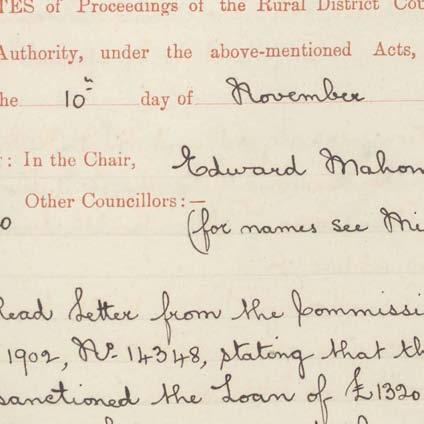 TES of Proceedings of the Rural District Cou
Authority, under the above-mentioned Acts,
he 10th day of November
: In the Chair, Edward Mahon
Other Councillors:—
o (for names see Mi
ead Letter from the Commissi
1902, No. 14348, stating that th
sanctioned the Loan of £1320